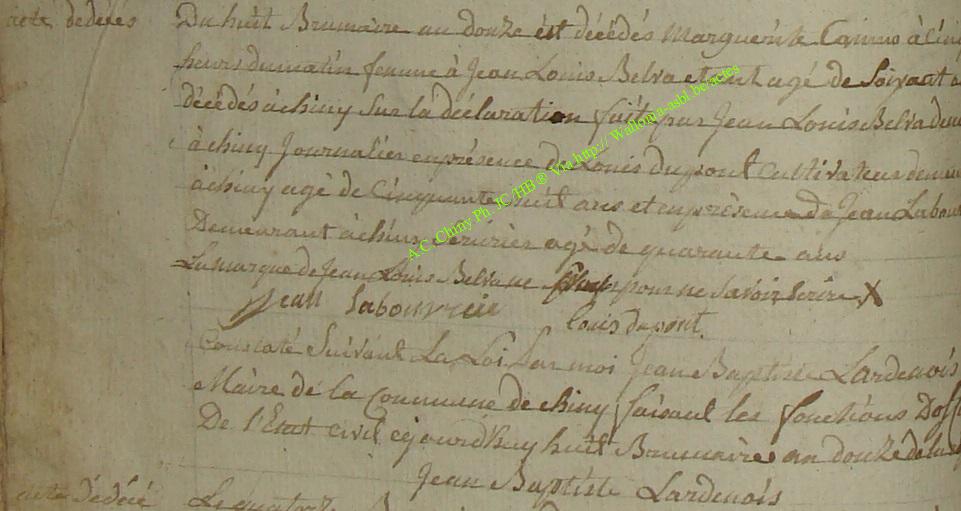 acte dédécés
Du huit Brumaire an douze est décédés Marguerite à
heurs du matin femme à Jean Louis Belva etant agé de soixant
décédés à chiny sur la déclaration fait par Jean Louis Belva
à chiny Journalier en présence de Louis dupont Cultivateur
à chiny agé de Cinquante huit ans et en présence de Jean
Demeurant à chiny serurier agé de quarante ans
La marque de Jean Louis Belva ne pour ne savoir Serire X
jean labouvreie
louis dupont.
Constaté Suivant La Loi Par moi Jean Baptiste Lardenois
Maire de la Commune de chiny faisant les fonctions
De l'Etat civil cejourd'huy huit Brumaire an douze
Jean Baptiste Lardenois
acte dédécé
Le
A.C. Chiny Ph. JC /HB ® Via http:// Wallonia-asbl.be/actes